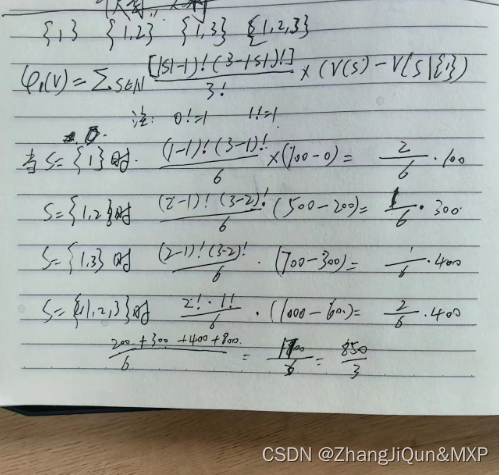 {1} {1,2} {1,3} {1,2,3}
φ₁(V) = Σ S∈N [|S|-1)! (3-|S|)!] / 3! × (V(S) - V(S|{1})
注: 0!=1 1!=1
当S={1}时 (1-1)! (3-1)! / 6 ×(100-0) = 2/6 · 100
S={1,2}时 (2-1)! (3-2)! / 6 (500-200) = 1/6 · 300
S={1,3}时 (2-1)! (3-2)! / 6 · (700-300) = 1/6 · 400
S={1,2,3}时 2! · 1! / 6 · (1000-600) = 2/6 · 400
200+300+400+800 / 6 = 1700 / 6 = 850 / 3
CSDN @ZhangJiQun&MXP